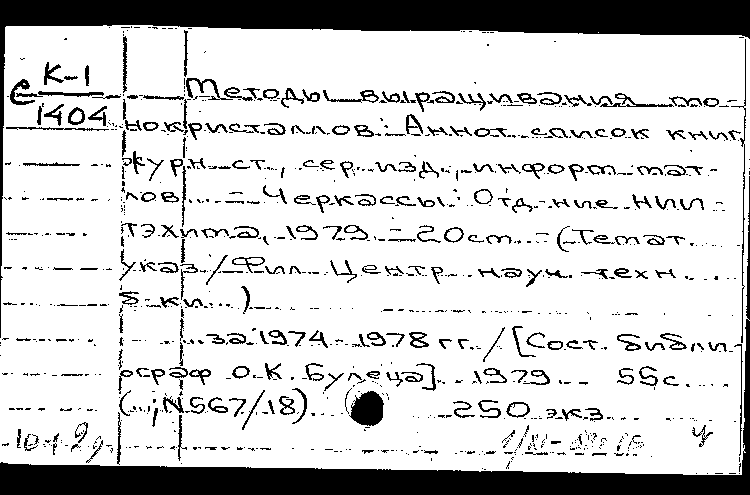 е К-1
1404
Методы выращивания мо-
нокристаллов: Аннот. список книг,
журн. ст., сер. изд., информ. мат-
лов... – Черкассы: Отд-ние НИИ-
ТЭХИМа, 1979. – 20 см. – (Темат.
указ. / Фил. Центр. науч.-техн.
б-ки...)
...за 1974-1978 гг. / [Сост. библи-
ограф О.К. Булеца]. 1979. 55с.
(...; N 567/18). 250 экз.